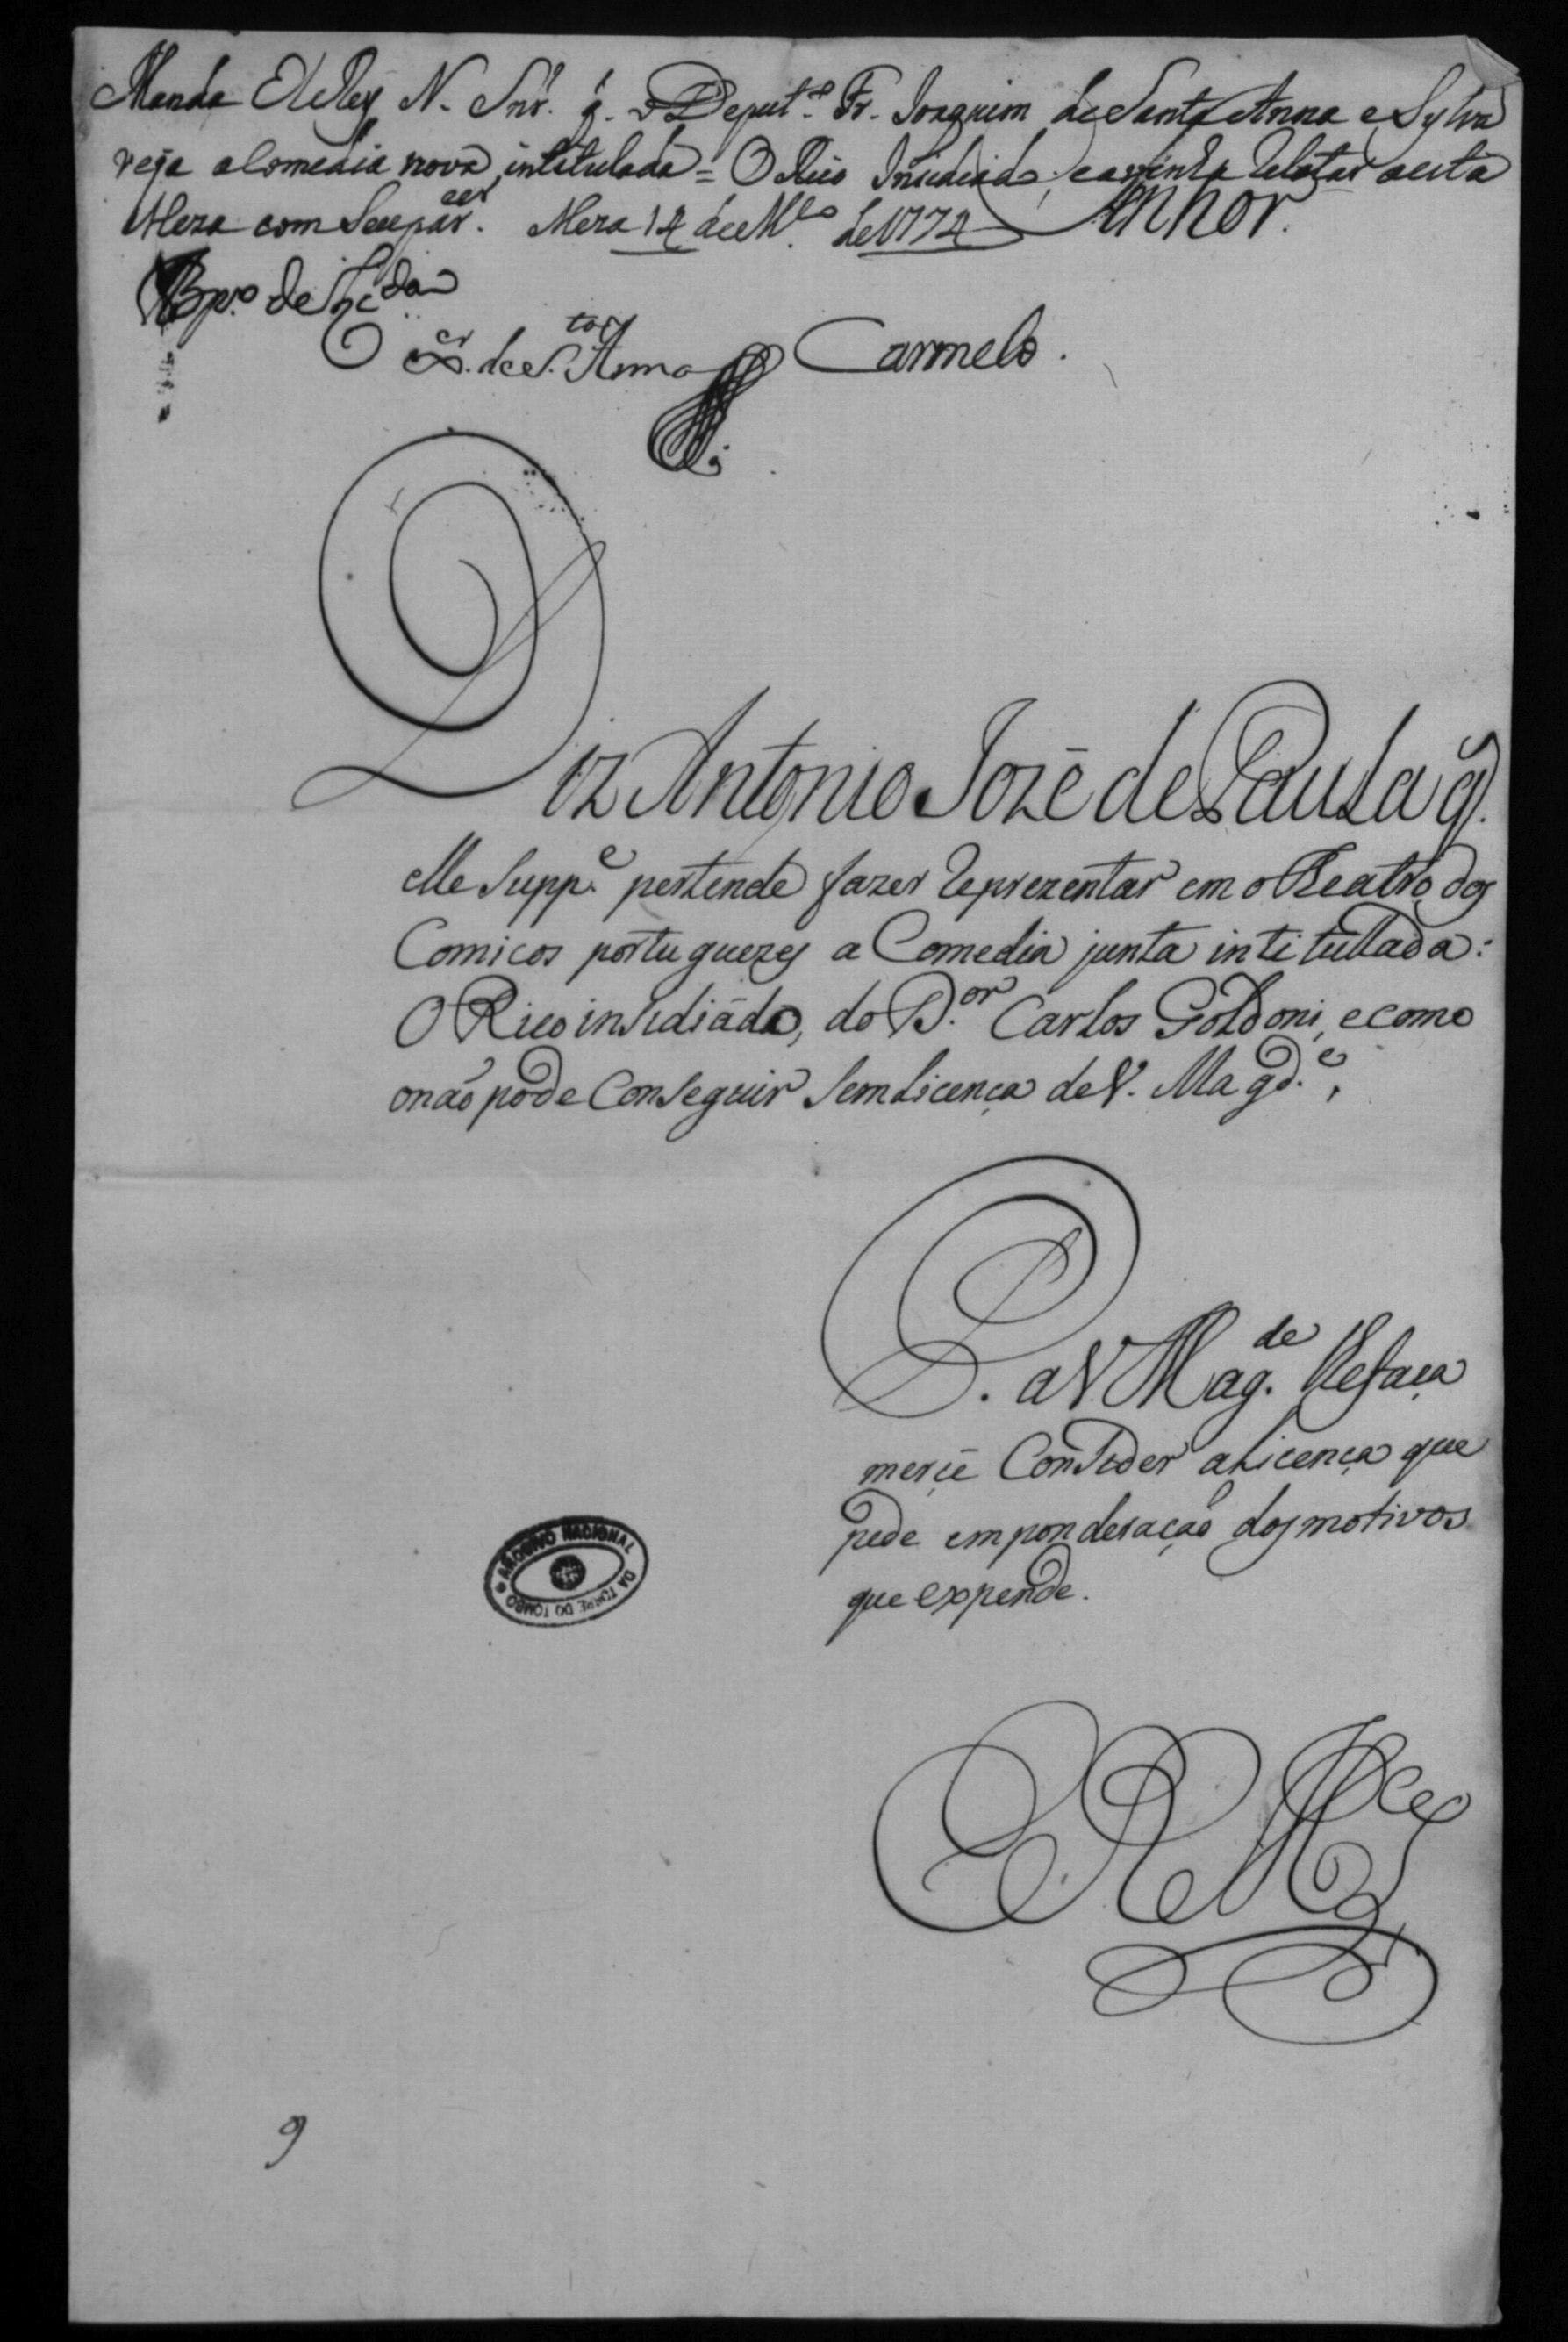 Manda ElRey N. Snr. q. o Deput.º Fr. Joaquim de Santa Anna e Sylva
veja a Comedia nova intitulada = O Rico Insidiado, e a venha relatar a esta
Meza com seu parcer. Meza 14 de M.ço de 1774
Snhor.
Bpo. de
S.ta Anna Carmelo.
Diz Antonio Jozé de Paula q.
elle Supp.e pertende fazer reprezentar em o Theatro dos
Comicos portuguezes a Comedia junta intitullada:
O Rico insidiádo, do D.or Carlos Goldoni, e como
o naõ pode Conseguir sem Licença de V. Magd.e,
P. a V. Mag.de lhe faça
mercê Conseder a Licença que
pede em ponderaçaõ dos motivos
que expende.
ARCHIVO NACIONAL DA TORRE DO TOMBO
E R M.ce
9